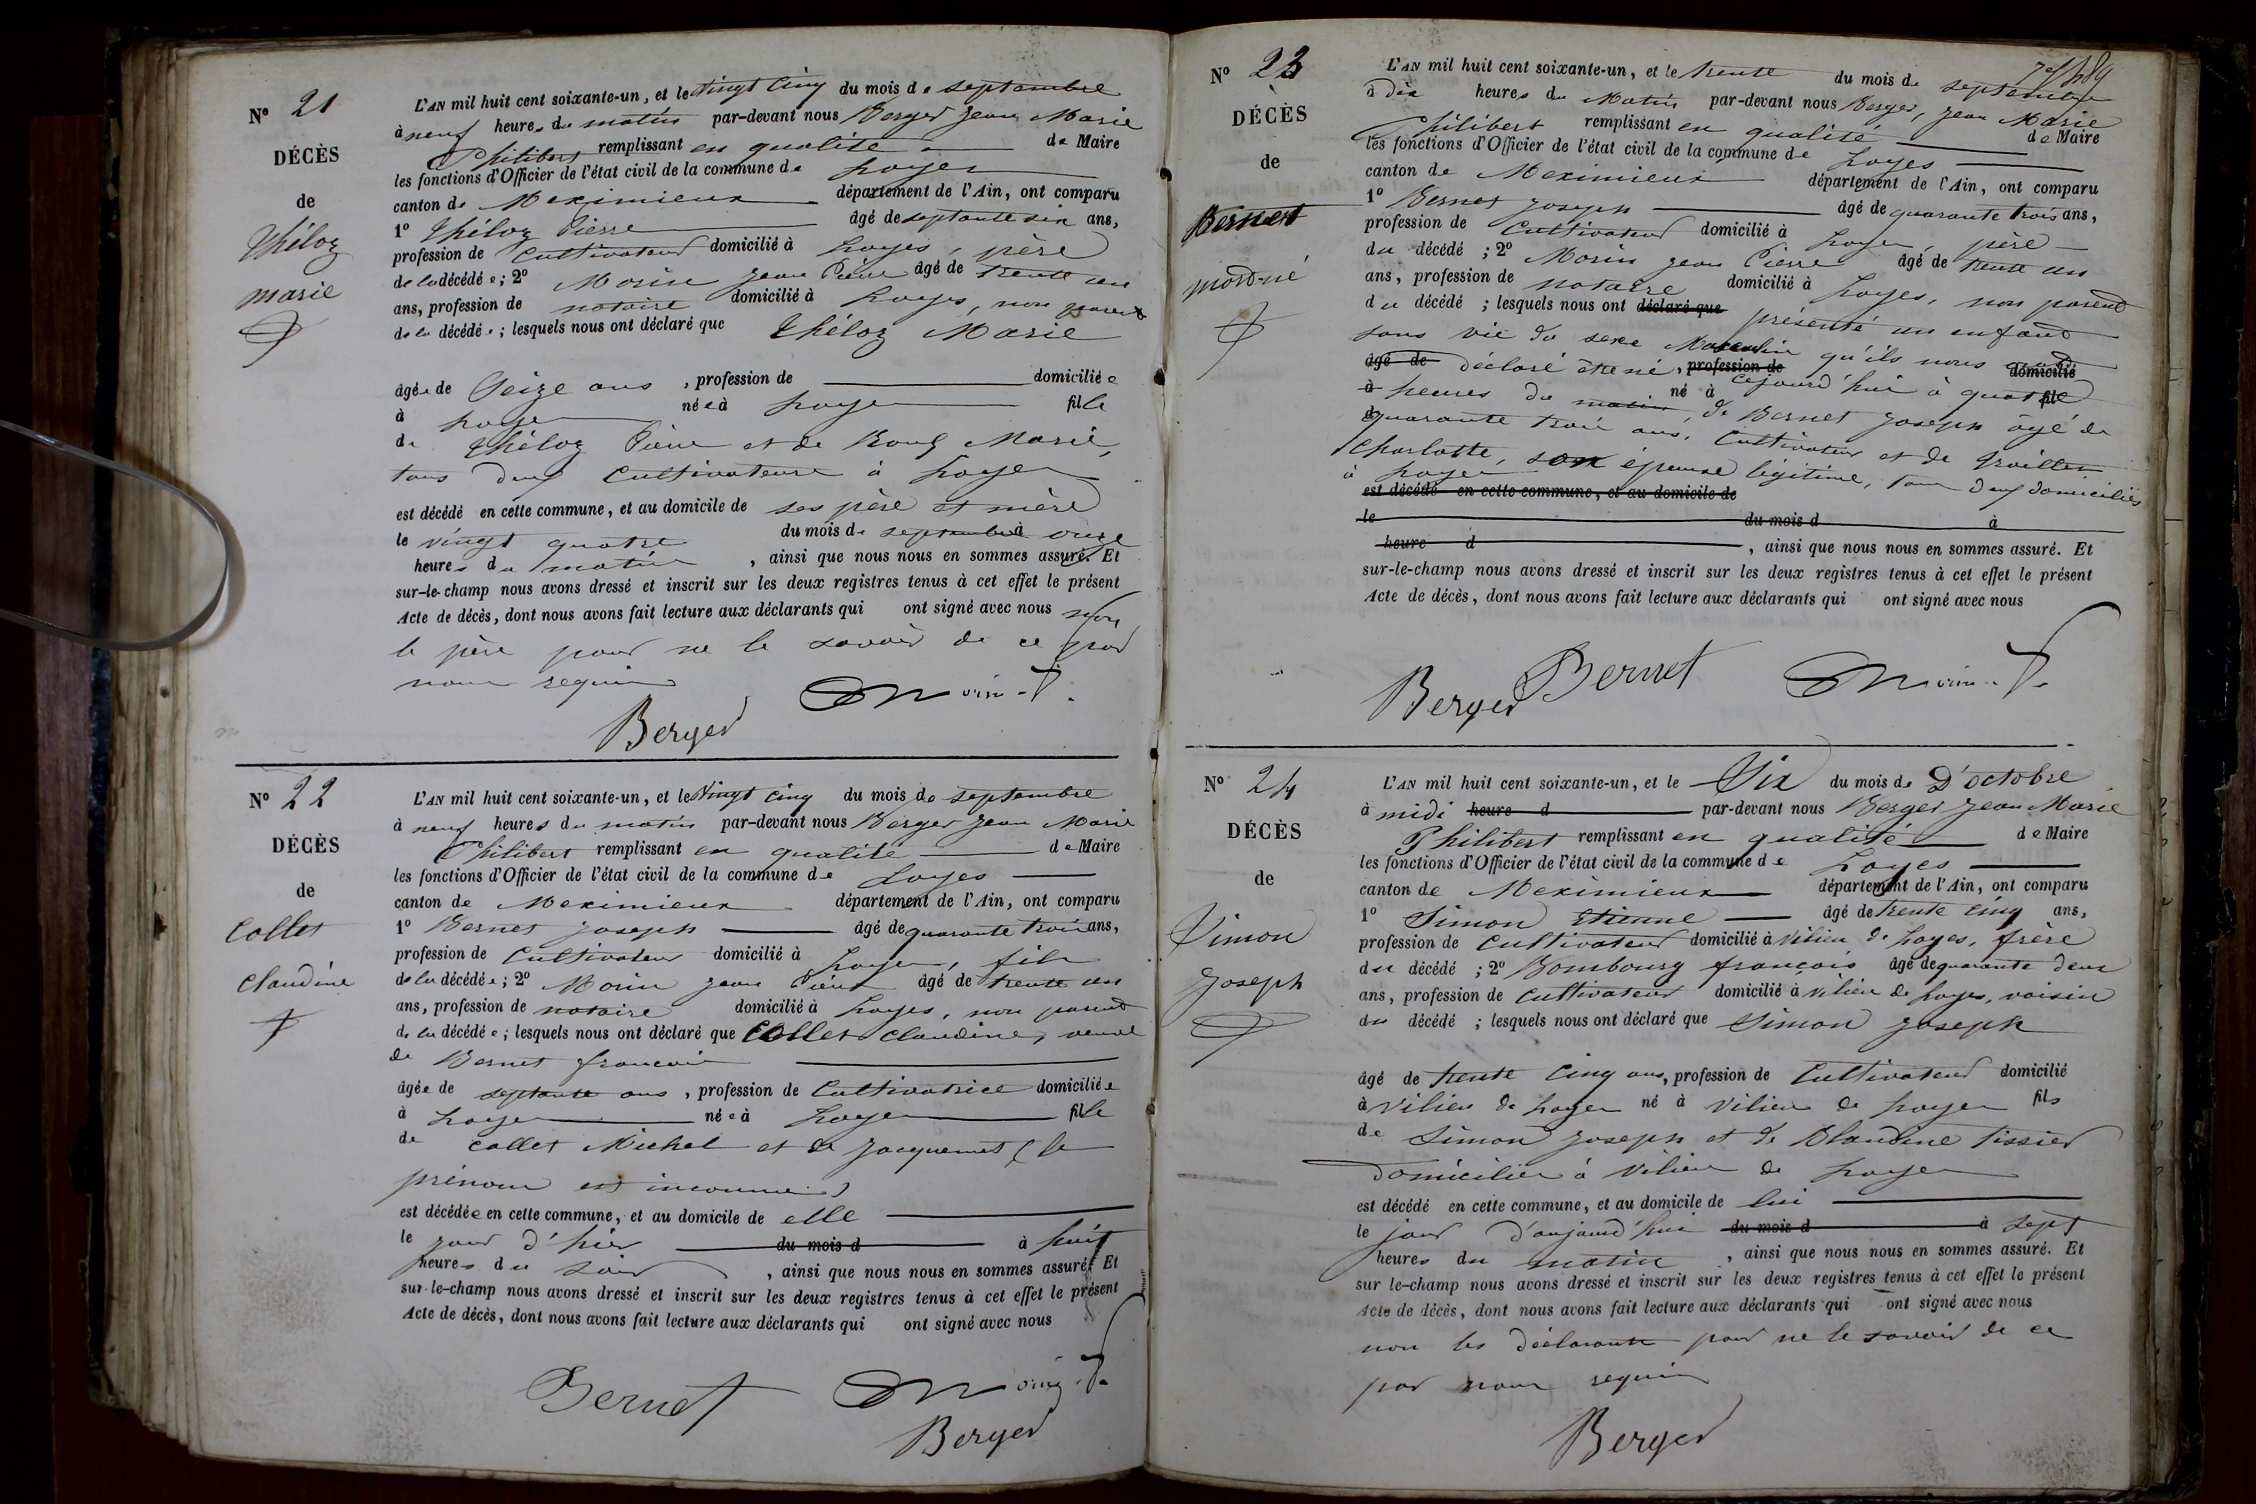 N° 21
DÉCÈS
de
Théloz
marie
L'AN mil huit cent soixante-un, et le vingt cinq du mois de septembre
à neuf heures du matin par-devant nous Berger Jean Marie
Philibert remplissant en qualité de Maire
les fonctions d'Officier de l'état civil de la commune de Loyes
canton de Meximieux département de l'Ain, ont comparu
1° Théloz Pierre âgé de septante six ans,
profession de Cultivateur domicilié à Loyes, père
de la décédée ; 2° Morin Jean Pierre âgé de trente un
ans, profession de notaire domicilié à Loyes, non parent
de la décédée ; lesquels nous ont déclaré que Théloz Marie
âgée de Seize ans, profession de domiciliée
à Loyes née à Loyes fille
de Théloz Pierre et de Marie,
tous deux Cultivateurs à Loyes
est décédé en cette commune, et au domicile de ses père et mère
le vingt quatre du mois de septembre à onze
heures du matin, ainsi que nous nous en sommes assuré. Et
sur-le-champ nous avons dressé et inscrit sur les deux registres tenus à cet effet le présent
Acte de décès, dont nous avons fait lecture aux déclarants qui ont signé avec nous non
le père pour ne le savoir de ce par
nous requis
Morin
Berger
N° 22
DÉCÈS
de
Collet
Claudine
L'AN mil huit cent soixante-un, et le Vingt cinq du mois de septembre
à neuf heures du matin par-devant nous Berger Jean Marie
Philibert remplissant en qualité de Maire
les fonctions d'Officier de l'état civil de la commune de Loyes
canton de Meximieux département de l'Ain, ont comparu
1° Bernet Joseph âgé de quarante trois ans,
profession de Cultivateur domicilié à Loyes, fils
de la décédée ; 2° Morin Jean Pierre âgé de trente un
ans, profession de notaire domicilié à Loyes, non parent
de la décédée ; lesquels nous ont déclaré que Collet Claudine, veuve
de Bernet françois
âgée de septante ans, profession de Cultivatrice domiciliée
à Loyes née à Loyes fille
de Collet Michel et de Jacquemet (le
prénom est inconnu)
est décédée en cette commune, et au domicile de elle
le jour d'hier du mois d à huit
heures du soir, ainsi que nous nous en sommes assuré. Et
sur-le-champ nous avons dressé et inscrit sur les deux registres tenus à cet effet le présent
Acte de décès, dont nous avons fait lecture aux déclarants qui ont signé avec nous
Bernet Morin
Berger
N° 23
DÉCÈS
de
Bernet
mort-né
L'AN mil huit cent soixante-un, et le trente du mois de septembre
à dix heures du Matin par-devant nous Berger, Jean Marie
Philibert remplissant en qualité de Maire
les fonctions d'Officier de l'état civil de la commune de Loyes
canton de Meximieux département de l'Ain, ont comparu
1° Bernet Joseph âgé de quarante trois ans,
profession de Cultivateur domicilié à Loyes, père
du décédé ; 2° Morin Jean Pierre âgé de trente un
ans, profession de notaire domicilié à Loyes, non parent
du décédé ; lesquels nous ont déclaré que présenté un enfant
sans vie du sexe Masculin qu'ils nous ont
âgé de déclaré être né, profession de domicilié
à né à cejourd'hui à quatre fil
heures du matin, de Bernet Joseph âgé de
quarante trois ans, Cultivateur et de
Charlotte, son épouse légitime, tous deux domiciliés
à Loyes
est décédé en cette commune, et au domicile de
le du mois d à
heure d, ainsi que nous nous en sommes assuré. Et
sur-le-champ nous avons dressé et inscrit sur les deux registres tenus à cet effet le présent
Acte de décès, dont nous avons fait lecture aux déclarants qui ont signé avec nous
Berger Bernet Morin
N° 24
DÉCÈS
de
Simon
Joseph
L'AN mil huit cent soixante-un, et le Six du mois de D'octobre
à midi heure d par-devant nous Berger Jean Marie
Philibert remplissant en qualité de Maire
les fonctions d'Officier de l'état civil de la commune de Loyes
canton de Meximieux département de l'Ain, ont comparu
1° Simon Etienne âgé de trente cinq ans,
profession de Cultivateur domicilié à Vilieu de Loyes, frère
du décédé ; 2° Bombourg françois âgé de quarante deux
ans, profession de Cultivateur domicilié à Vilieu de Loyes, voisin
du décédé ; lesquels nous ont déclaré que Simon Joseph
âgé de trente cinq ans, profession de Cultivateur domicilié
à Vilieu de Loyes né à Vilieu de Loyes fils
de Simon Joseph et de Blandine Tissier
domiciliés à Vilieu de Loyes
est décédé en cette commune, et au domicile de lui
le jour d'aujourd'hui du mois d à sept
heures du matin, ainsi que nous nous en sommes assuré. Et
sur le-champ nous avons dressé et inscrit sur les deux registres tenus à cet effet le présent
Acte de décès, dont nous avons fait lecture aux déclarants qui ont signé avec nous
non les déclarants pour ne le savoir de ce
par nous requis
Berger